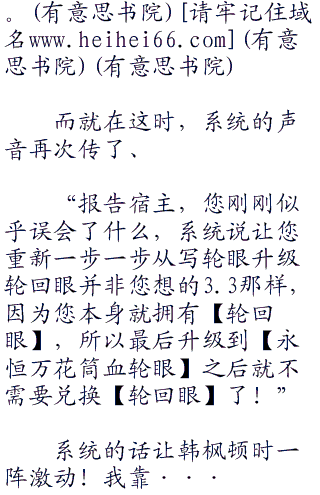 。(有意思书院)[请牢记住域
名www.heihei66.com](有意
思书院)(有意思书院)
而就在这时，系统的声
音再次传了、
“报告宿主，您刚刚似
乎误会了什么，系统说让您
重新一步一步从写轮眼升级
轮回眼并非您想的3.3那样，
因为您本身就拥有【轮回
眼】，所以最后升级到【永
恒万花筒血轮眼】之后就不
需要兑换【轮回眼】了！”
系统的话让韩枫顿时一
阵激动！我靠···